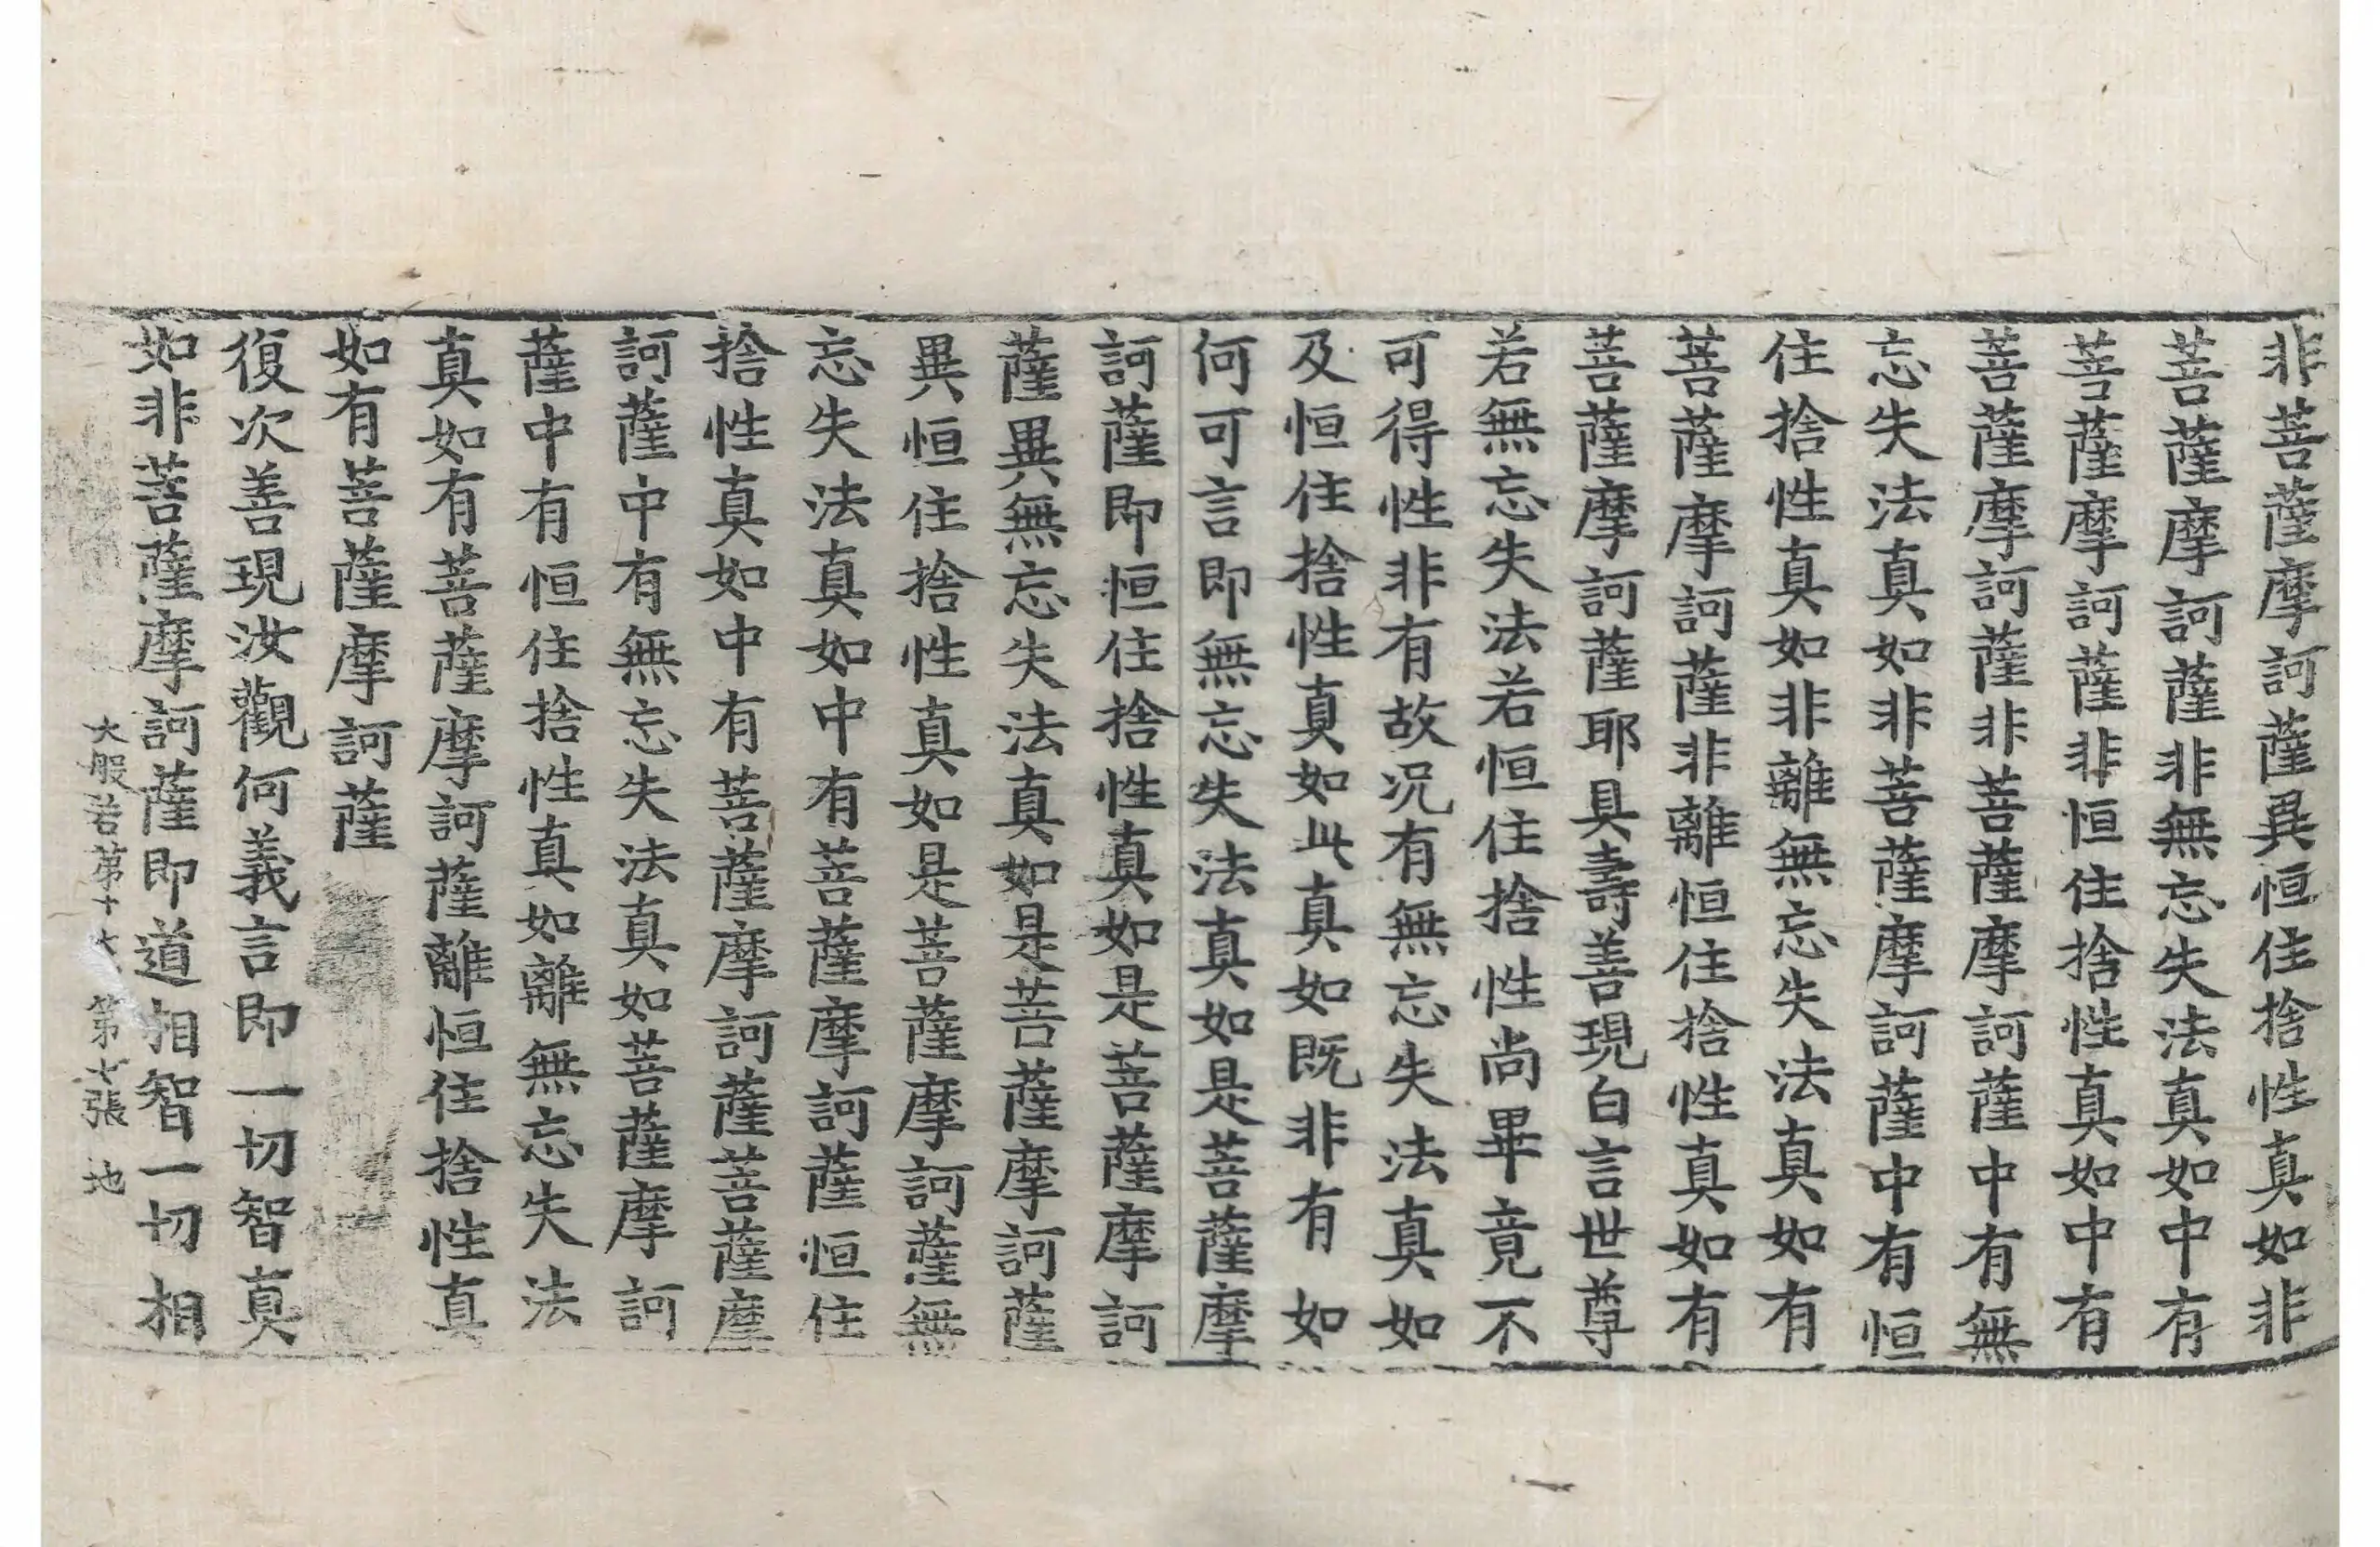 非菩薩摩訶薩異恒住捨性真如非
菩薩摩訶薩非無忘失法真如中有
菩薩摩訶薩非恒住捨性真如中有
菩薩摩訶薩非菩薩摩訶薩中有無
忘失法真如非菩薩摩訶薩中有恒
住捨性真如非離無忘失法真如有
菩薩摩訶薩非離恒住捨性真如有
菩薩摩訶薩耶具壽善現白言世尊
若無忘失法若恒住捨性尚畢竟不
可得性非有故況有無忘失法真如
及恒住捨性真如此真如既非有如
何可言即無忘失法真如是菩薩摩
訶薩即恒住捨性真如是菩薩摩訶
薩異無忘失法真如是菩薩摩訶薩
異恒住捨性真如是菩薩摩訶薩無
忘失法真如中有菩薩摩訶薩恒住
捨性真如中有菩薩摩訶薩菩薩摩
訶薩中有無忘失法真如菩薩摩訶
薩中有恒住捨性真如離無忘失法
真如有菩薩摩訶薩離恒住捨性真
如有菩薩摩訶薩
復次善現汝觀何義言即一切智真
如非菩薩摩訶薩即道相智一切相
大般若第十 第七張 地